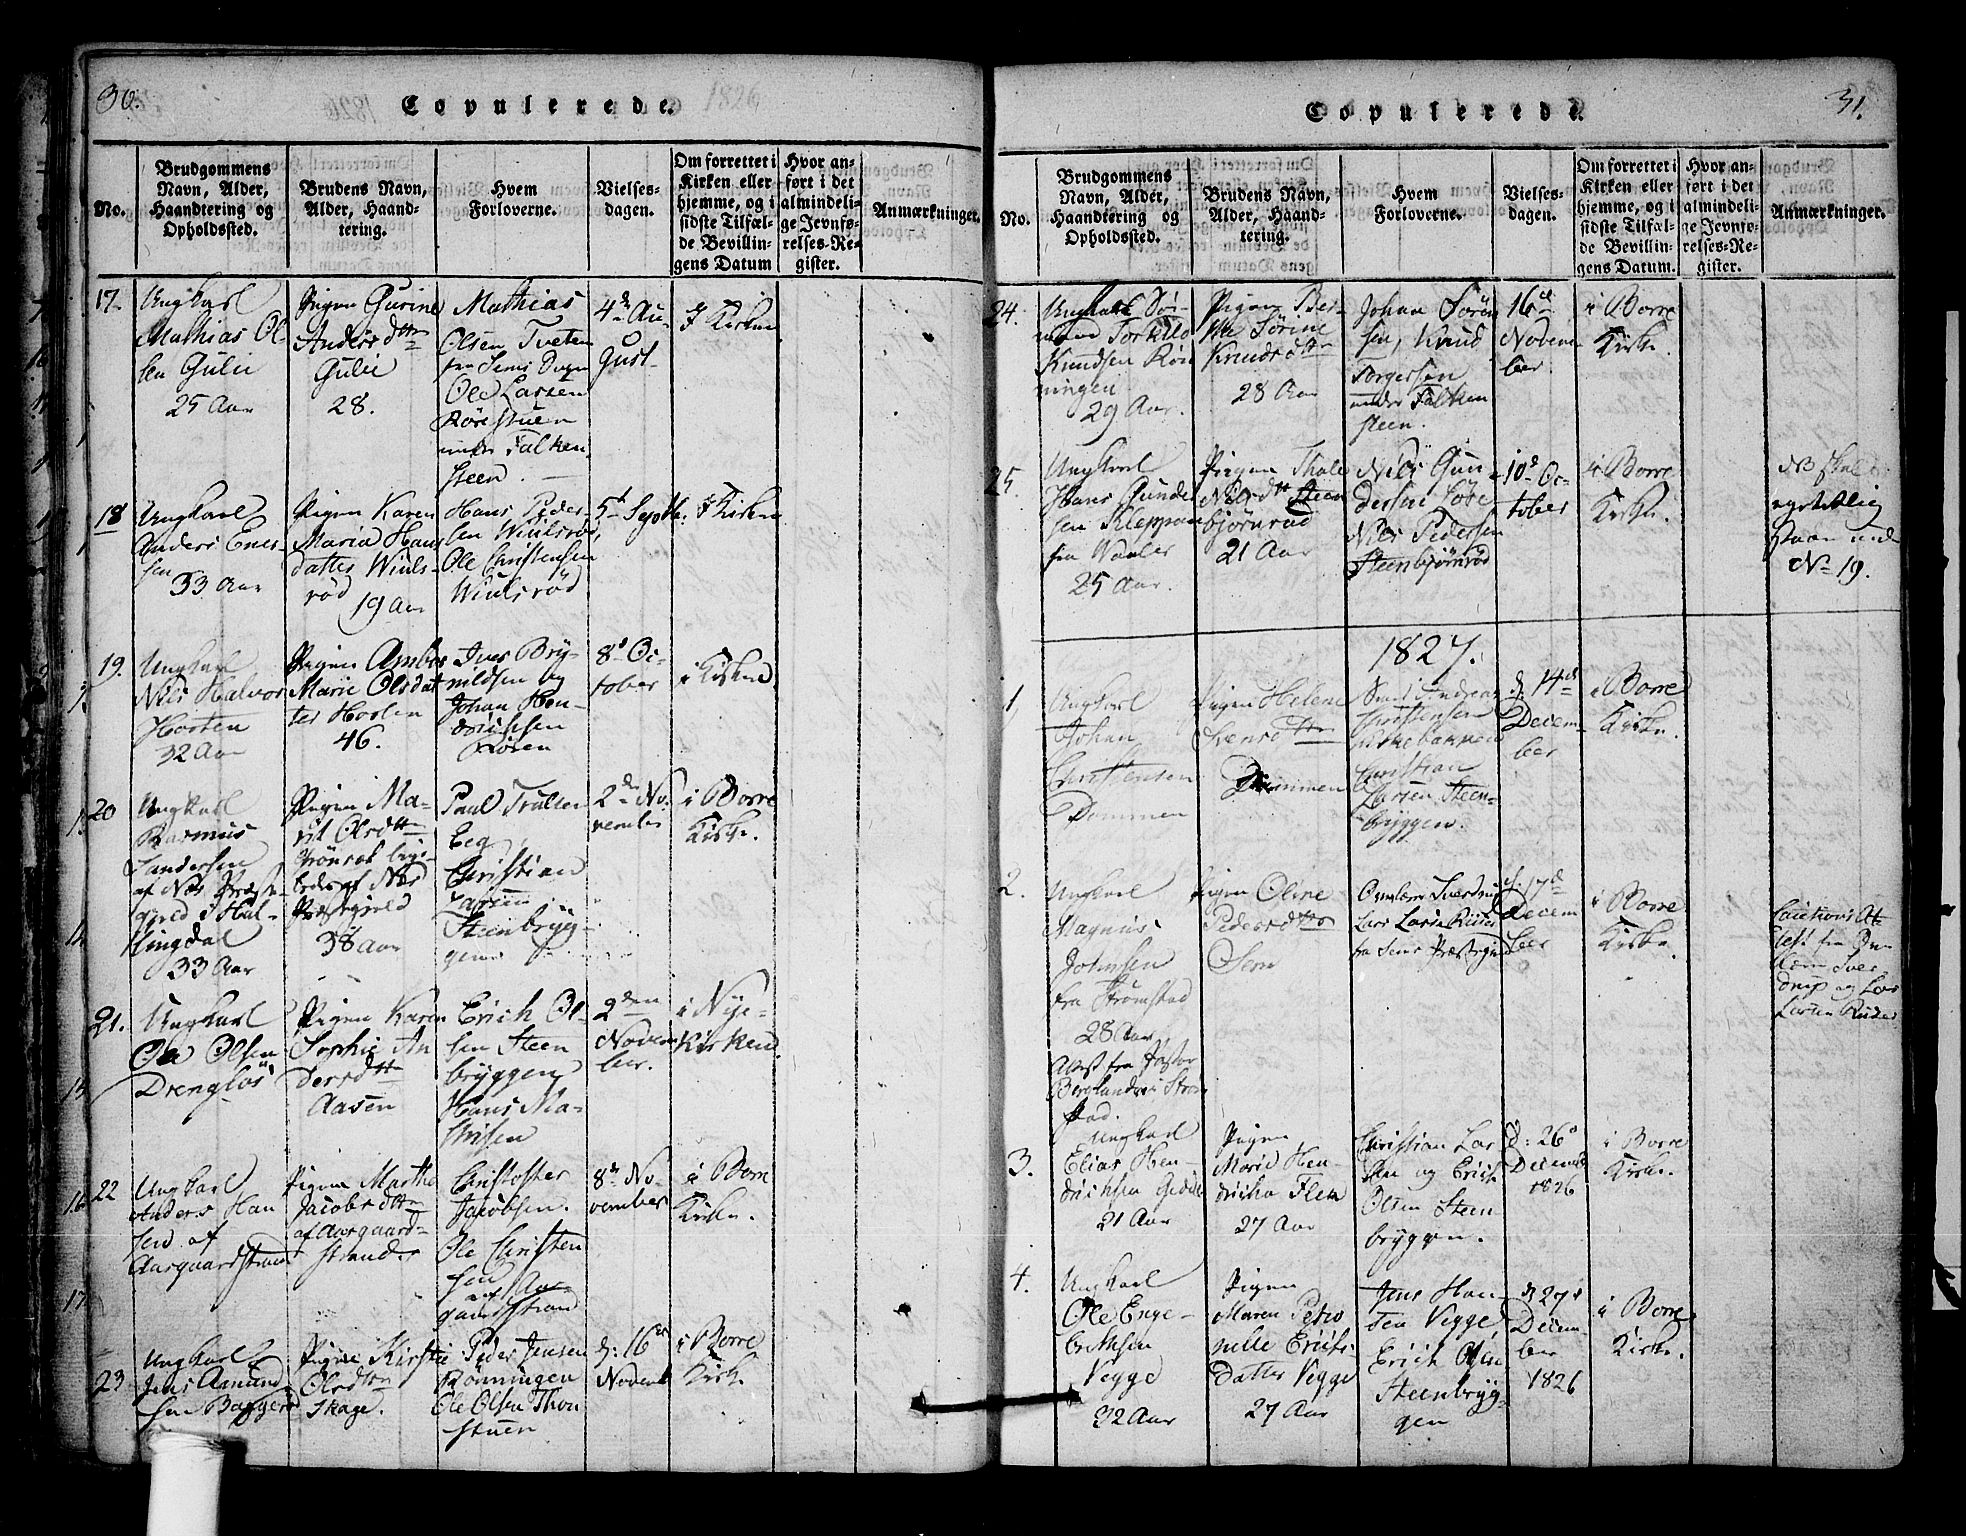 30.
Copulerede.
1826
No.
Brudgommens
Navn, Alder,
Haandtering og
Opholdssted.
Brudens Navn,
Alder, Haand-
tering.
Hvem
Forloverne.
Vielses-
dagen.
Om forrettet i
Kirken eller
hjemme, og i
sidste Tilfæl-
de Bevillin-
gens Datum
Hvor an-
ført i det
almindeli-
ge Jevnfø-
relses-Re-
gister.
Anmærkninger.
17.
Ungkarl
Mathias Ol-
sen Gulli
25 Aar
Pigen Gurine
Andersdttr
28.
Mathias
Olsen Tveten
fra Sems
Ole Larsen
Rørestuen
under Falken
steen.
4de Au-
gust
I Kirken
18
Ungkarl
Anders Enes-
sen
33 Aar
Pigen Karen
Maria Hans
datter Wiuls-
rød
19 Aar
Hans Peder-
sen Wiulsrød
Ole Christensen
Wiulsrød
5t Septb:
I Kirken
19.
Ungkarl
Nils Halvor
Horten
32 Aar
Pigen
Marie Olsdat
ter Horten
46.
Iver Bry-
nildsen og
Johan Hen-
drichsen
8d Oc-
tober
i Kirken
20
Ungkarl
Rasmus
Sandersen
af Næs Præste
gjeld i Hal-
lingdal
33 Aar
Pigen Ma-
rit Olsdttr
af Næs
Præstegjeld
38 Aar
Paul Trulsen
Eeg
Christian
Larsen
Steenbryg-
gen
2den No-
vember
i Borre
Kirke.
21.
Ungkarl
Ole Olsen
Pigen Karen
Sophie An
dersdttr
Aasen
Erich Ol-
sen Steen
bryggen
Hans Ma-
thisen
2den
Novem
ber.
i Nye-
Kirken
22
Ungkarl
Anders Han
sen af
Aasgaardstrand
Pigen Marthe
Jacobsdttr
af Aasgaard-
strander
Christopher
Jacobsen.
Ole Christen
sen
af Aas-
gaardstrand
8de No-
vember
i Borre
Kirke.
23
Ungkarl
Jens Amund
sen
Pigen Kirstie
Olsdttr
Skage.
Peder Jensen
Rønningen
Ole Olsen Thon
stuen
d: 16
Novemb
i Borre
Kirke
Copulerede.
31.
No.
Brudgommens
Navn, Alder,
Haandtering og
Opholdssted.
Brudens Navn,
Alder, Haand-
tering.
Hvem
Forloverne.
Vielses-
dagen.
Om forrettet i
Kirken eller
hjemme, og i
sidste Tilfæl-
de Bevillin-
gens Datum.
Hvor an-
ført i det
almindeli-
ge Jevnfø-
relses-Re-
gister.
Anmærkninger.
24.
Ungkarl Sø-
mand Torkild
Knudsen Røn
ningen
29 Aar.
Pigen Ber-
the Sørine
Knudsdttr
28 Aar
Johan Søren
sen, Knud
Torgersen
under Falken
steen.
16de
Novem
ber.
i Borre
Kirke.
25.
Ungkarl
Hans Gunder
sen Kleppan
fra Waaler
25 Aar.
Pigen Thale
Nilsdttr Steen
bjørnrød
21 Aar
Nils Gun
dersen
Nils Pedersen
Steenbjørnrød
10d Oc-
tober
i Borre
Kirke.
NB skal
egentlig
staae under
No 19.
1827.
1
Ungkarl
Johan
Christensen
Dammen
Pigen Helene
Dammen
Andreas
Christensen
Kirkebakken
Christian
Larsen Steen-
bryggen.
d. 14de
Decem-
ber
i Borre
Kirke.
2.
Ungkarl
Magnus
Johnsen
fra Strømstad
28 Aar
Attest fra Pastor
Berglund i Strøm
stad.
Pigen Oline
Pedersdttr
Sem
Sverdrup
Lars Larsen Rüder
fra Sems Præstegield
d. 17de
Decem
ber
i Borre
Kirke
Cautions At
test fra
Sver
drup og Lars
Larsen Rüder
3.
Ungkarl
Elias Hen-
drichsen
21 Aar
Pigen
Marie Hen-
dricha
27 Aar
Christian Lar
sen og Erich
Olsen Steen
bryggen.
d: 26d
Decemb
1826
i Borre
Kirke.
4.
Ungkarl
Ole Enge-
brethsen
Vegge
32 Aar
Pigen
Maren Petro
nelle Erichs
datter Vegge
27 Aar
Jens Han-
sen Vegge
Erich Olsen
Steenbryg-
gen
d 27d
Decem-
ber
1826
i Borre
Kirke.